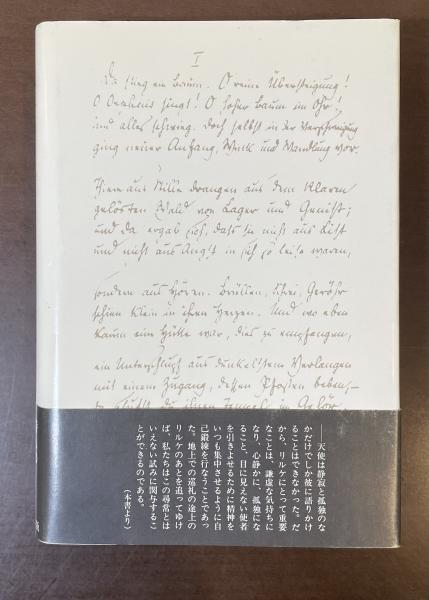 I
Da stieg ein Baum. O reine Übersteigung!
O Orpheus singt! O hoher Baum im Ohr!
Und alles schwieg. Doch selbst in der Verschweigung
ging neuer Anfang, Wink und Wandlung vor.
Tiere aus Stille drangen aus dem klaren
gelösten Wald von Lager und Genist;
und da ergab sich, dass sie nicht aus List
und nicht aus Angst in sich so leise waren,
sondern aus Hören. Brüllen, Schrei, Geröhr
schien klein in ihren Herzen. Und wo eben
kaum eine Hütte war, dies zu empfangen,
ein Unterschlupf aus dunkelstem Verlangen
mit einem Zugang, dessen Pfosten beben,–
da schufst du ihnen Tempel im Gehör.
――天使は静寂と孤独のな
かだけでしか彼に語りかけ
ることはできなかった。だ
から、リルケにとって重要
なことは、謙虚な気持ちに
なり、心静かに、孤独にな
ること、目に見えない使者
を引きよせるために精神を
いつも集中させるように自
己鍛練を行なうことであっ
た。地上での巡礼の途上の
リルケのあとを追ってゆけ
ば、私たちはこの尋常とは
いえない試みに関与するこ
とができるのである。
（本書より）